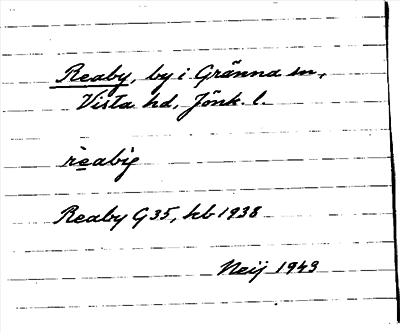 Reaby, by i Gränna sn,
Vista hd, Jönk. l.
Reaby G 35, hb 1938
Neij 1949